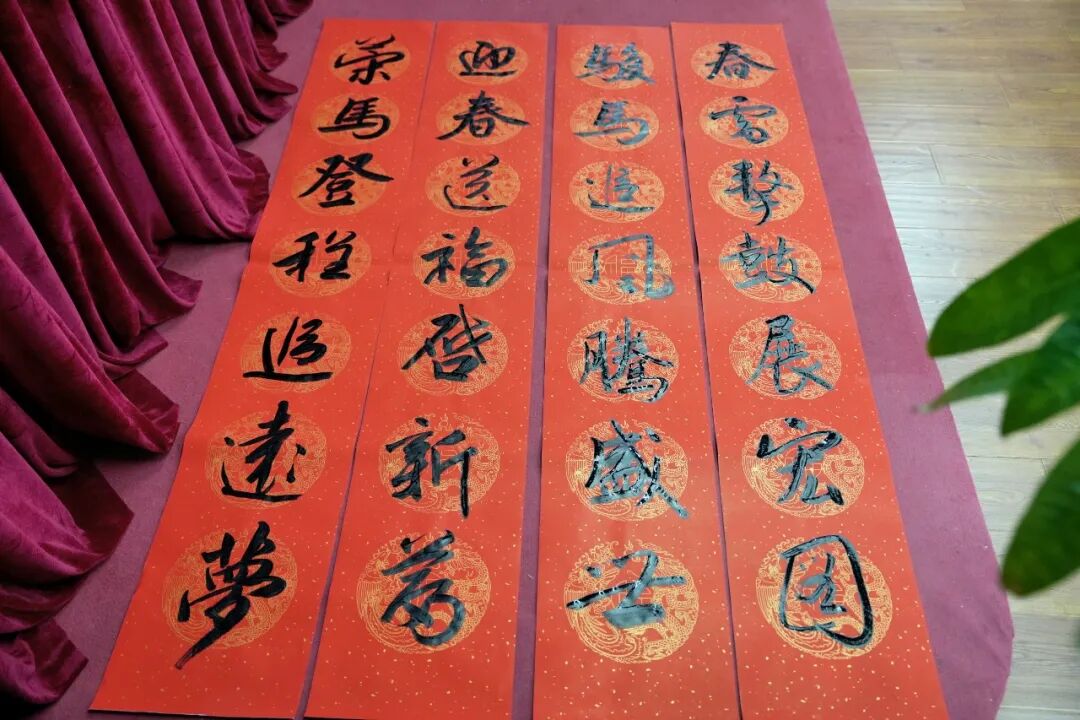 策馬登程追遠夢
迎春送福啓新篇
駿馬追風騰盛世
春雷擊鼓展宏圖